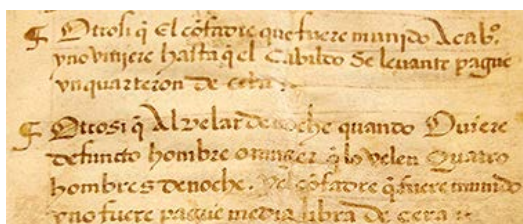 ¶ Otrosi q̃ El cõfadre que fuere munido Acabº.
y no viniere hasta q̃ el Cabildo Se levante pague
vn quarteron de cera :~
¶ Otrosi q̃ Al velar de noche quando Oviere
defuncto hombre o muger q̃ lo velen Quatro
hombres de noche. Y el cõfadre q̃ fuere munido
y no fuere pague media libra de cera :~